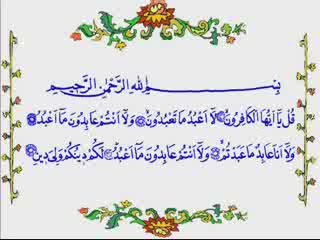 بِسْمِ اللهِ الرَّحْمٰنِ الرَّحِيمِ
قُلْ يَا اَيُّهَا الْكَافِرُونَۙ لَٓا اَعْبُدُ مَا تَعْبُدُونَۙ وَلَٓا اَنْتُمْ عَابِدُونَ مَٓا اَعْبُدُۚ
وَلَٓا اَنَا عَابِدٌ مَا عَبَدْتُمْۙ وَلَٓا اَنْتُمْ عَابِدُونَ مَٓا اَعْبُدُۜ لَكُمْ دِينُكُمْ وَلِيَ دِينِ